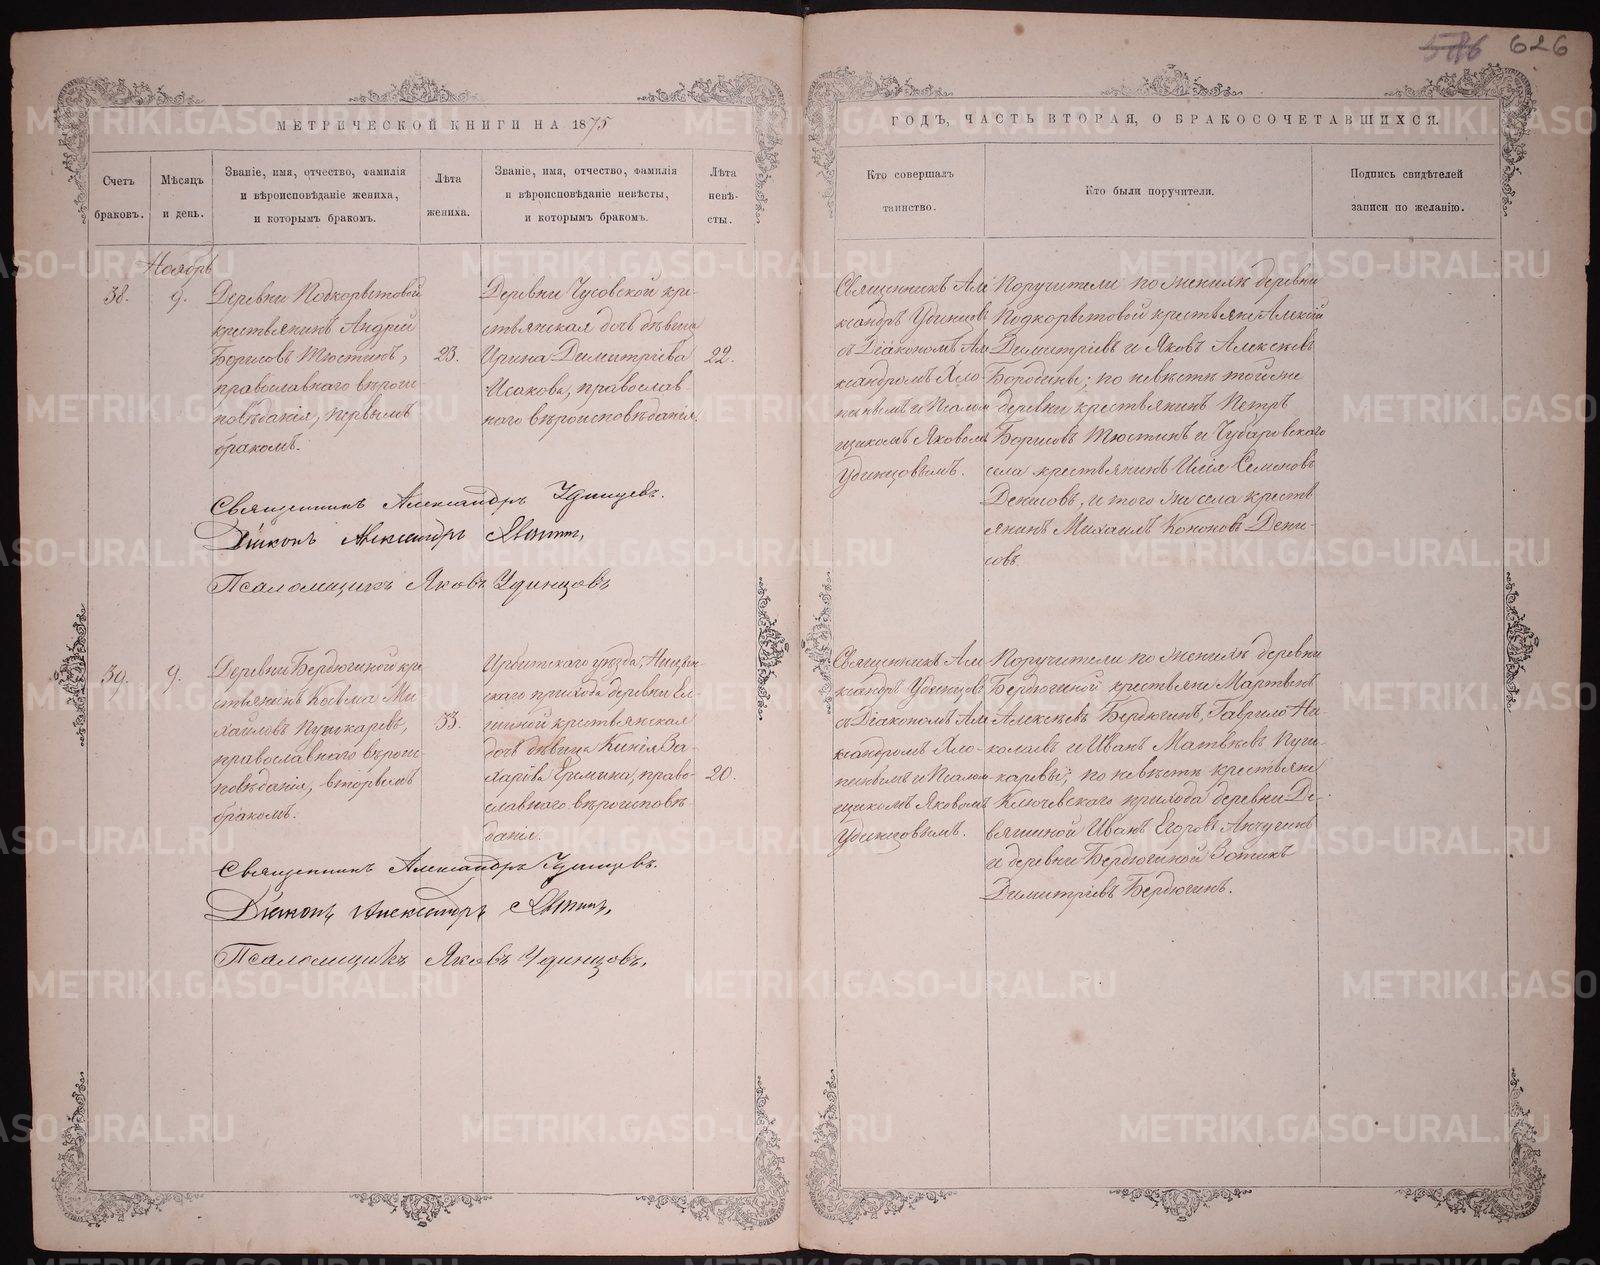 586 626
МЕТРИЧЕСКОЙ КНИГИ НА 1875
ГОДЪ, ЧАСТЬ ВТОРАЯ, О БРАКОСОЧЕТАВШИХСЯ.
Счетъ
браковъ.
Мѣсяцъ
и день.
Званіе, имя, отчество, фамилія
и вѣроисповѣданіе жениха,
и которымъ бракомъ.
Лѣта
жениха.
Званіе, имя, отчество, фамилія
и вѣроисповѣданіе невѣсты,
и которымъ бракомъ.
Лѣта
невѣ-
сты.
Кто совершалъ
таинство.
Кто были поручители.
Подпись свидѣтелей
записи по желанію.
Ноябрь
38.
9.
Деревни Подкорытовой
крестьянинъ Андрей
Борисовъ Тюстинъ,
православнаго вѣроис-
повѣданія, первымъ
бракомъ.
23.
Деревни Чусовской кре-
стьянская дочь дѣвица
Ирина Димитріева
Исакова, православ-
наго вѣроисповѣданія.
22.
Священникъ Але
ксандръ Удинцов
съ Діакономъ Ал
ександромъ Хло-
пинымъ и Псалом
щикомъ Яковомъ
Удинцовымъ.
Поручители по женихѣ деревни
Подкорытовой крестьяне Алексѣй
Димитріевъ и Яковъ Алексѣевъ
Бородины; по невѣстѣ той же
деревни крестьянинъ Петръ
Борисовъ Тюстинъ и Чубаровскаго
села крестьянинъ Илія Семеновъ
Денисовъ, и того же села кресть
янинъ Михаилъ Кононовъ Дени-
совъ.
Священникъ Александръ Удинцевъ.
Діаконъ Александръ
Псаломщикъ Яковъ Удинцовъ
39.
9.
Деревни Бердюгиной кре
стьянинъ Косьма Ми
хайловъ Пушкаревъ,
православнаго вѣроис
повѣданія, вторымъ
бракомъ.
33.
Ирбитскаго уѣзда, Ницын-
скаго прихода деревни Ел-
киной крестьянская
дочь дѣвица Кикія За-
харова Еремина, право-
славнаго вѣроисповѣ-
данія.
20.
Священникъ Але
ксандръ Удинцов
съ Діакономъ Ал
ександромъ Хло-
пинымъ и Псалом
щикомъ Яковомъ
Удинцовымъ.
Поручители по женихѣ деревни
Бердюгиной крестьяне Мартинъ
Алексѣевъ Бердюгинъ, Гаврило Ни-
колаевъ и Иванъ Матвѣевъ Пуш-
каревы; по невѣстѣ крестьяне
Ключевскаго прихода деревни Де-
вяшиной Иванъ Егоровъ Анчугинъ
и деревни Бердюгиной Зотикъ
Димитріевъ Бердюгинъ.
Священникъ Александръ Удинцевъ.
Діаконъ Александръ
Псаломщикъ Яковъ Удинцовъ,
METRIKI.GASO-URAL.RU